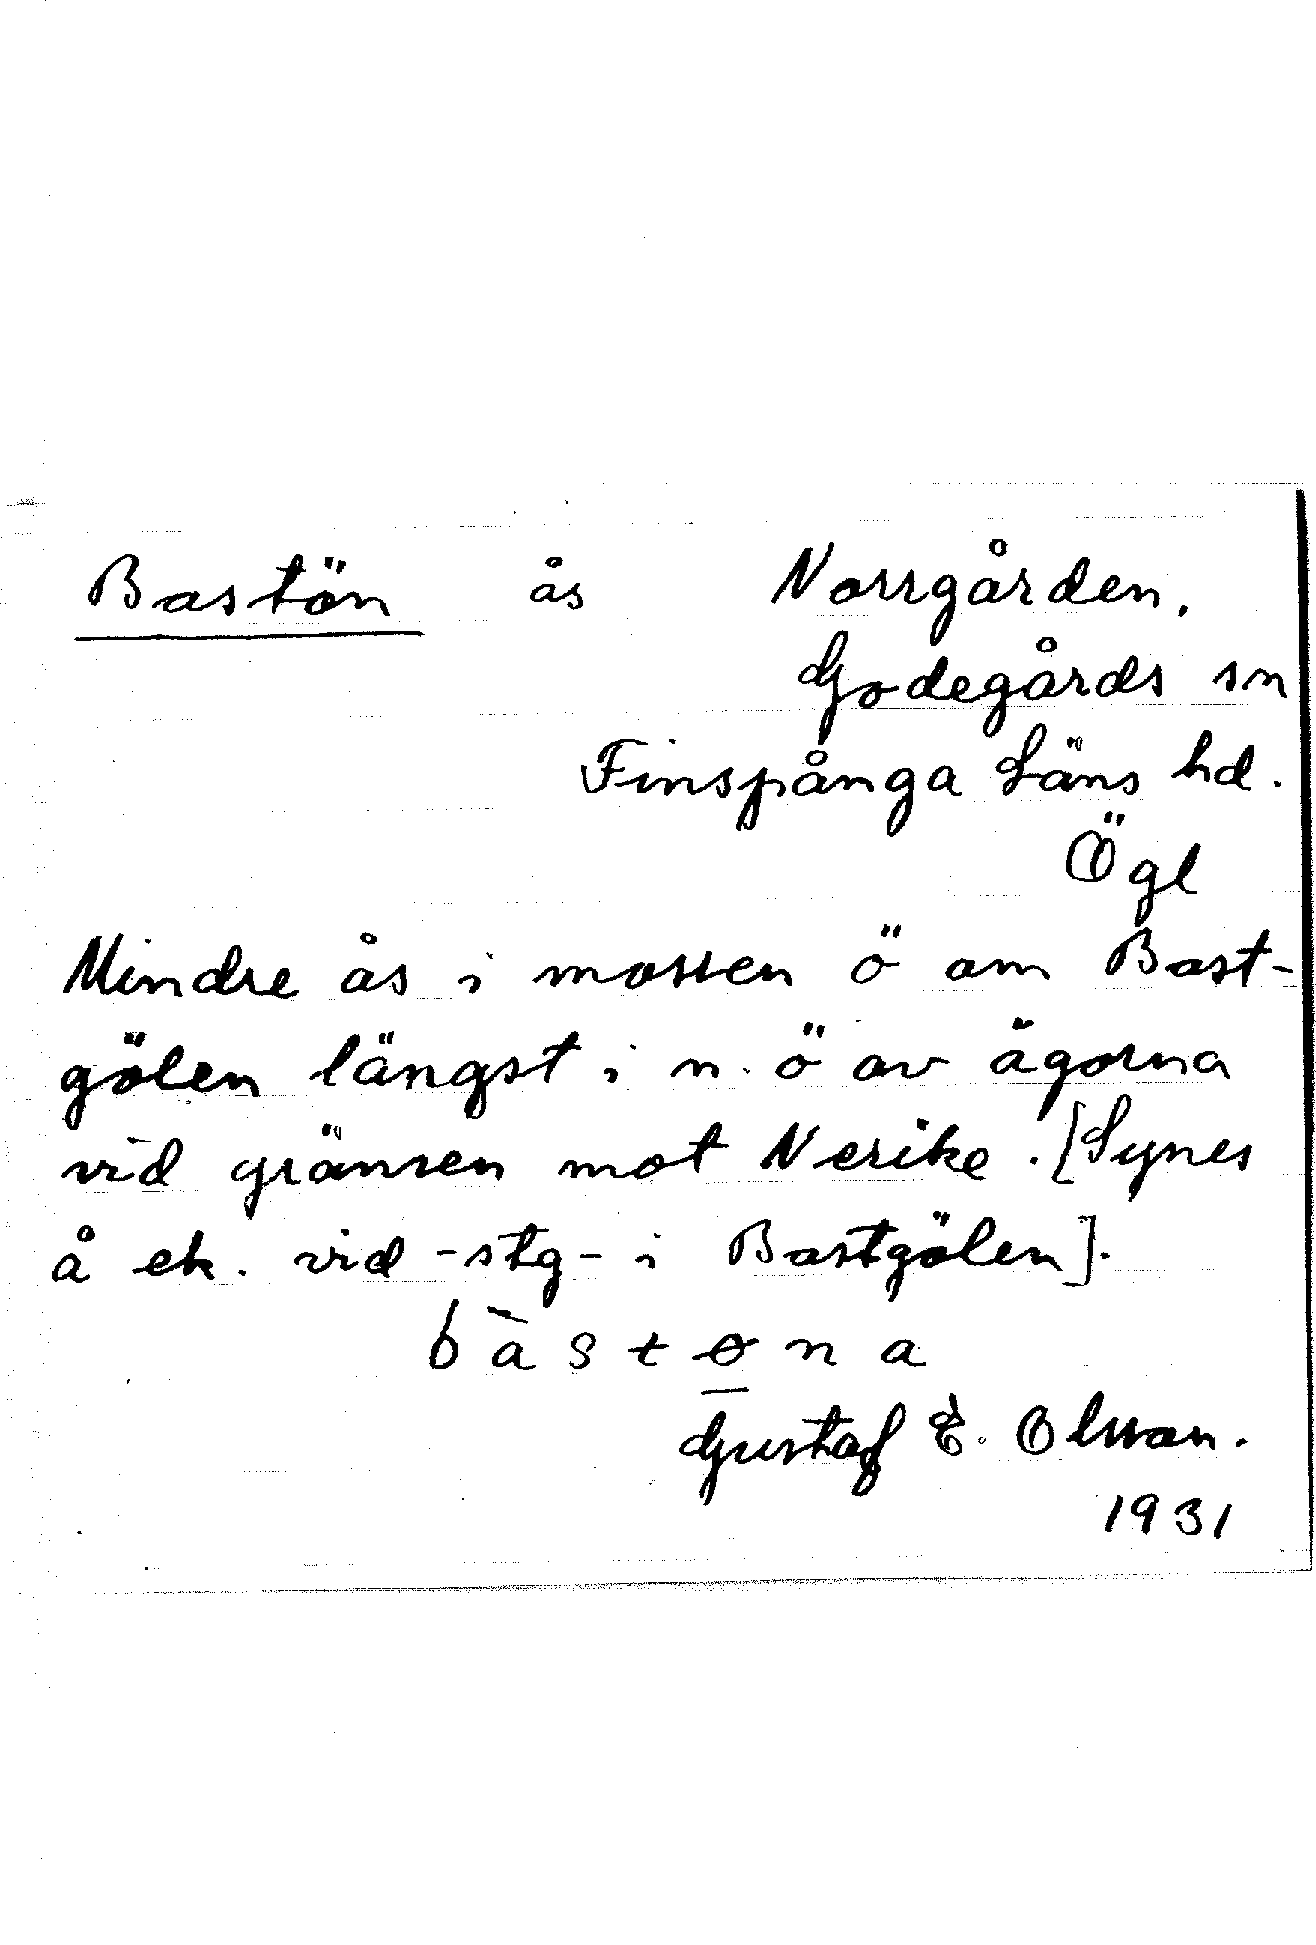 Bastön ås Norrgården,
Godegårds sn
Finspånga Läns hd.
Ögl
Mindre ås i mossen ö om Bast-
gölen längst i n. ö av ägorna
vid gränsen mot Nerike. [Synes
å ek. vid -stg- i Bastgölen].
bàstøna
Gustaf E. Olsson.
1931